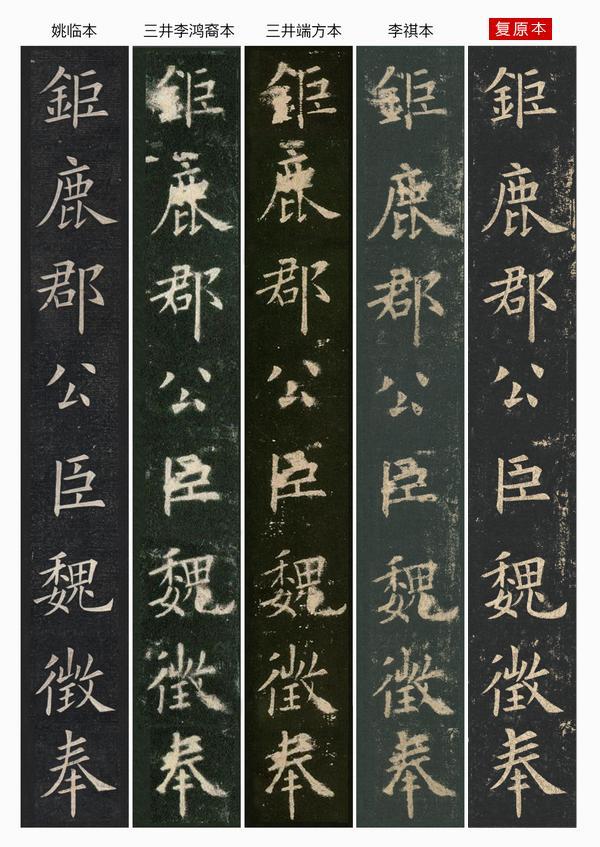 姚临本
三井李鸿裔本
三井端方本
李祺本
复原本
鉅鹿郡公臣魏徵奉
鉅鹿郡公臣魏徵奉
鉅鹿郡公臣魏徵奉
鉅鹿郡公臣魏徵奉
鉅鹿郡公臣魏徵奉